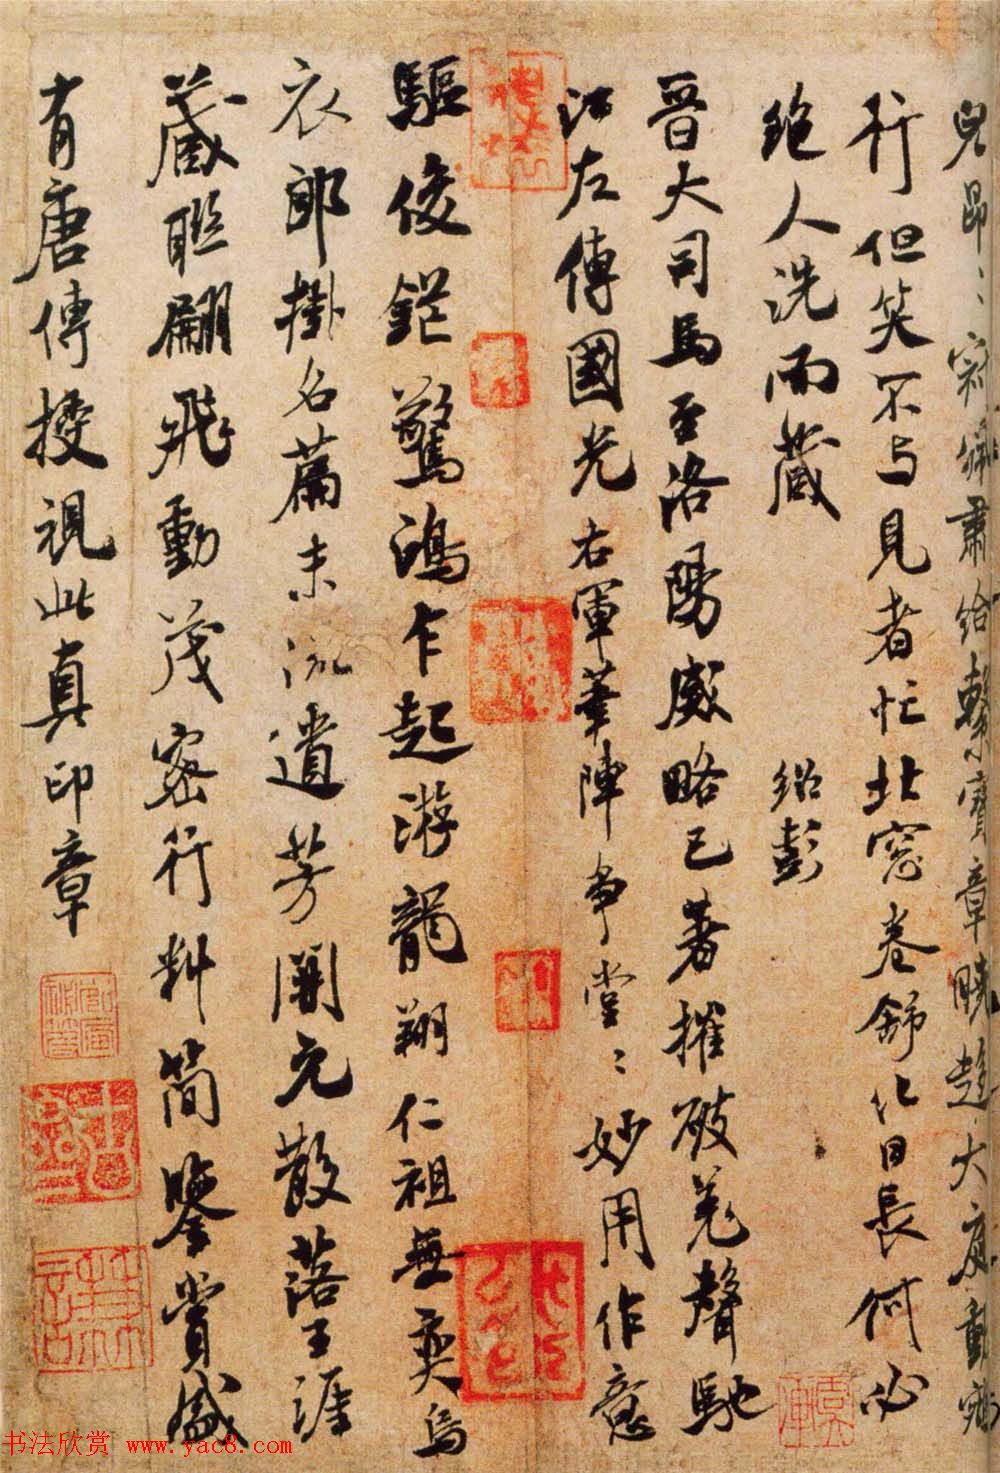 兒昂〻 肅給繫寶章曉趨大庭
行但笑不与見者忙北窓卷舒化日長何必
絶人洗而藏
紹彭
晉大司馬至洛陽威略已著摧破羌聲馳
江左傳國光右軍筆陣爭堂〻妙用作意
驅俊銋驚鴻乍起游龍翔仁祖無奕烏
衣郎掛名篇末流遺芳開元散落王涯
藏聯翩飛動茂密行斜簡鑒賞盛
有唐傳授視此真印章
书法欣赏 www.yac8.com